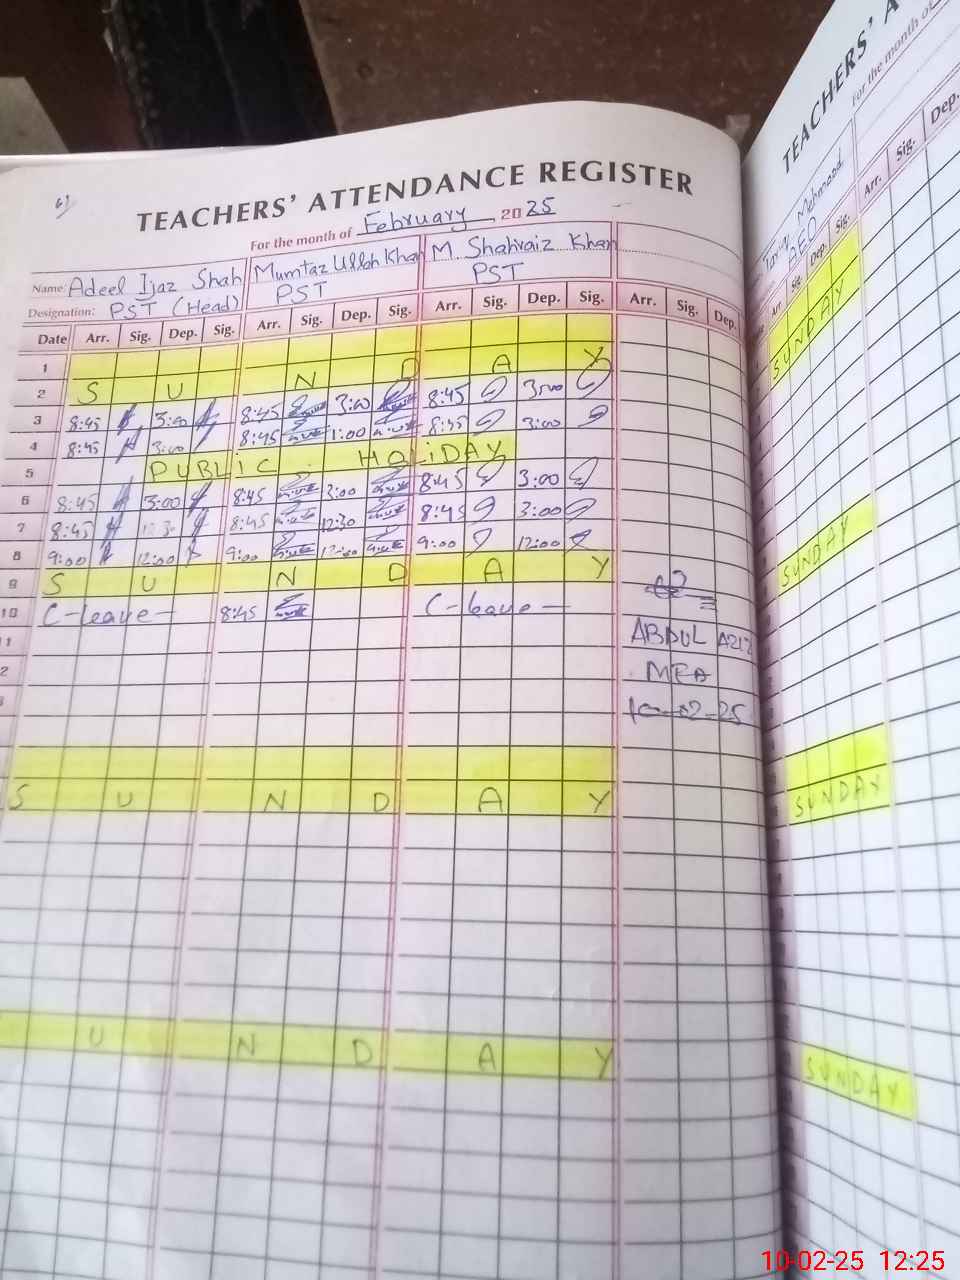 6)
TEACHERS' ATTENDANCE REGISTER
For the month of February 2025
Name: Adeel Ijaz Shah Mumtaz Ullah Khan M. Shahraiz Khan
Designation: PST (Head) PST PST
Date Arr. Sig. Dep. Sig. Arr. Sig. Dep. Sig. Arr. Sig. Dep. Sig. Arr. Sig. Dep.
1
2 S U N D A Y
3 8:45 3:00 8:45 3:00 8:45 3:00
4 8:45 3:00 8:45 1:00 8:45 3:00
5 PUBLIC HOLIDAY
6 8:45 3:00 8:45 3:00 8:45 3:00
7 8:45 8:45 12:30 8:45 3:00
8 9:00 12:00 9:00 12:00 9:00 12:00
9 S U N D A Y
10 C-leave 8:45 C-leave
11 ABDUL AZIZ
MEA
10-02-25
S U N D A Y
U N D A Y
TEACHERS' A
For the month of
Mehmood
AEO
Arr. Sig. Dep. Sig. Arr. Sig. Dep.
SUNDAY
SUNDAY
SUNDAY
SUNDAY
10-02-25 12:25